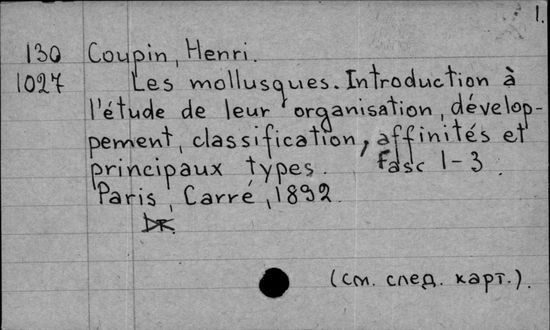 1.
130 Coupin, Henri.
1027 Les mollusques. Introduction à
l'étude de leur organisation, dévelop-
pement, classification, affinités et
principaux types. Fasc 1-3.
Paris, Carré, 1892.
(см. след. карт.).